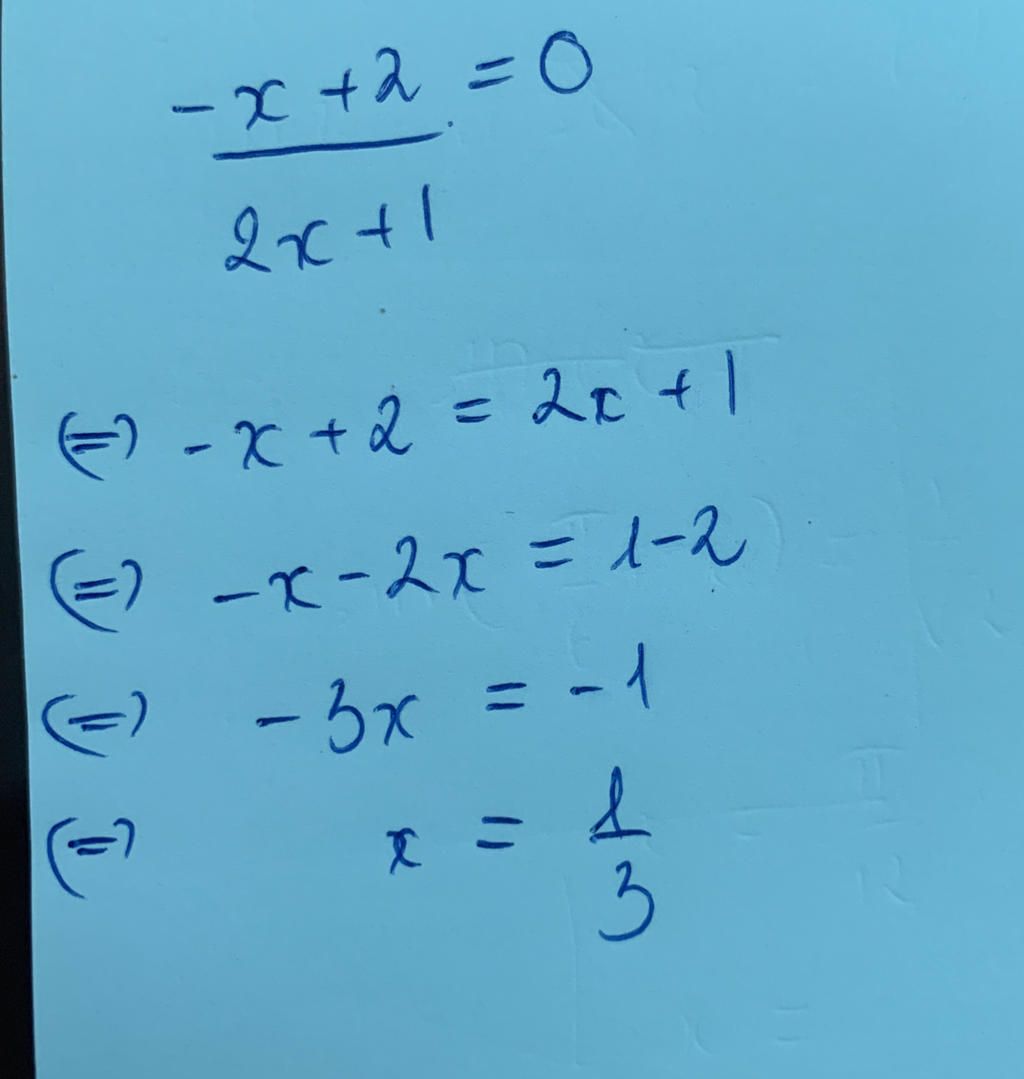 -x +2 = 0
2x +1
(=) -x +2 = 2x +1
(=) -x -2x = 1-2
(=) -3x = -1
(=) x = 1
3